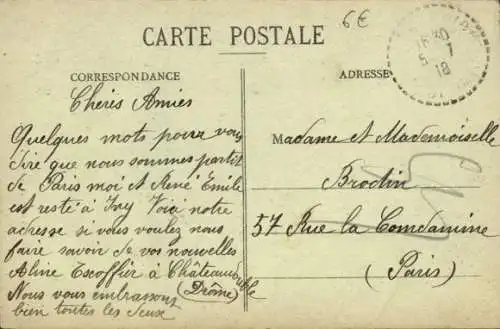 6€
CARTE POSTALE
CORRESPONDANCE
ADRESSE
Chères Amies
Quelques mots pour vous
dire que nous sommes partit
de Paris moi et René Emile
est resté à Ivry Voici notre
adresse si vous voulez nous
faire savoir de vos nouvelles
Aline Escoffier à Châteaudouble
(Drôme)
Nous vous embrassons
bien toutes les deux
Madame et Mademoiselle
Brodin
57 Rue la Condamine
(Paris)